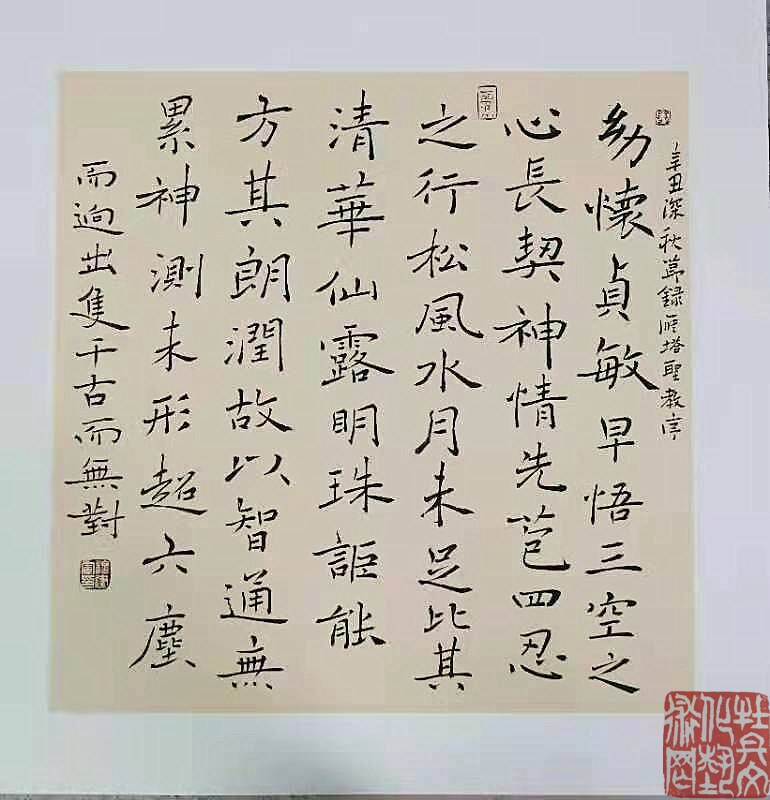 辛丑深秋節録雁塔聖教序
幼懷貞敏早悟三空之
心長契神情先苞四忍
之行松風水月未足比其
清華仙露明珠詎能
方其朗潤故以智通無
累神測未形超六塵
而迥出隻千古而無對